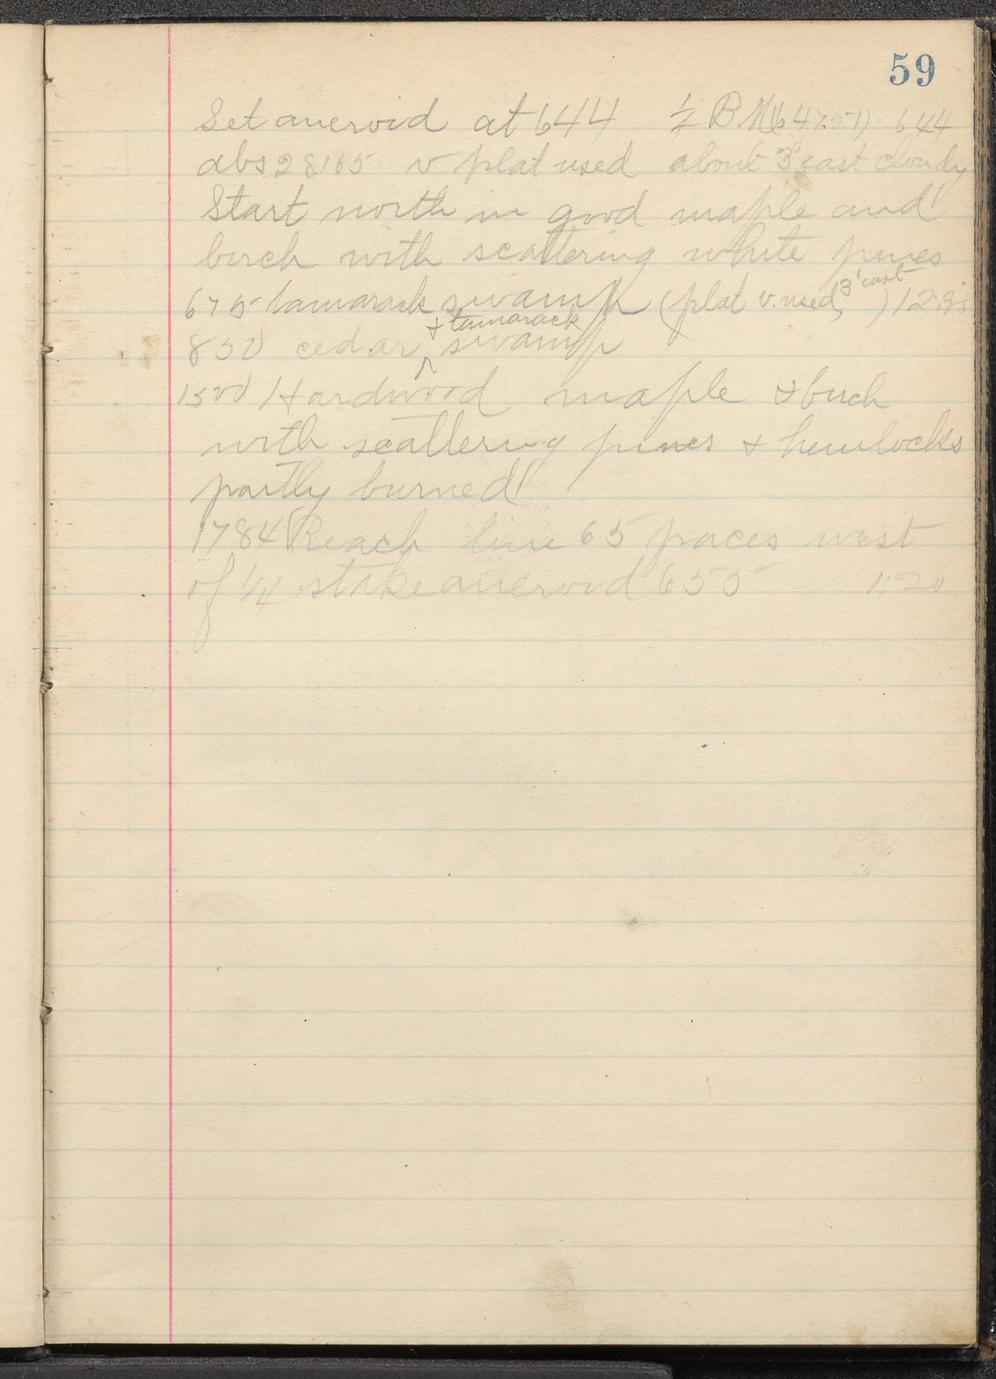 59
Set aneroid at 644 BM (647.51) 644
abs 28165 v plat used about 3° east cloudy
Start north in good maple and
birch with scattering white pines
675 tamarack swamp (plat v. used, 3° east) 12:35
& tamarack
850 cedar ^ swamp
1500 Hardwood maple & birch
with scattering pines & hemlocks
partly burned
1784 Reach line 65 paces west
of 1/4 stake aneroid 655 1:20